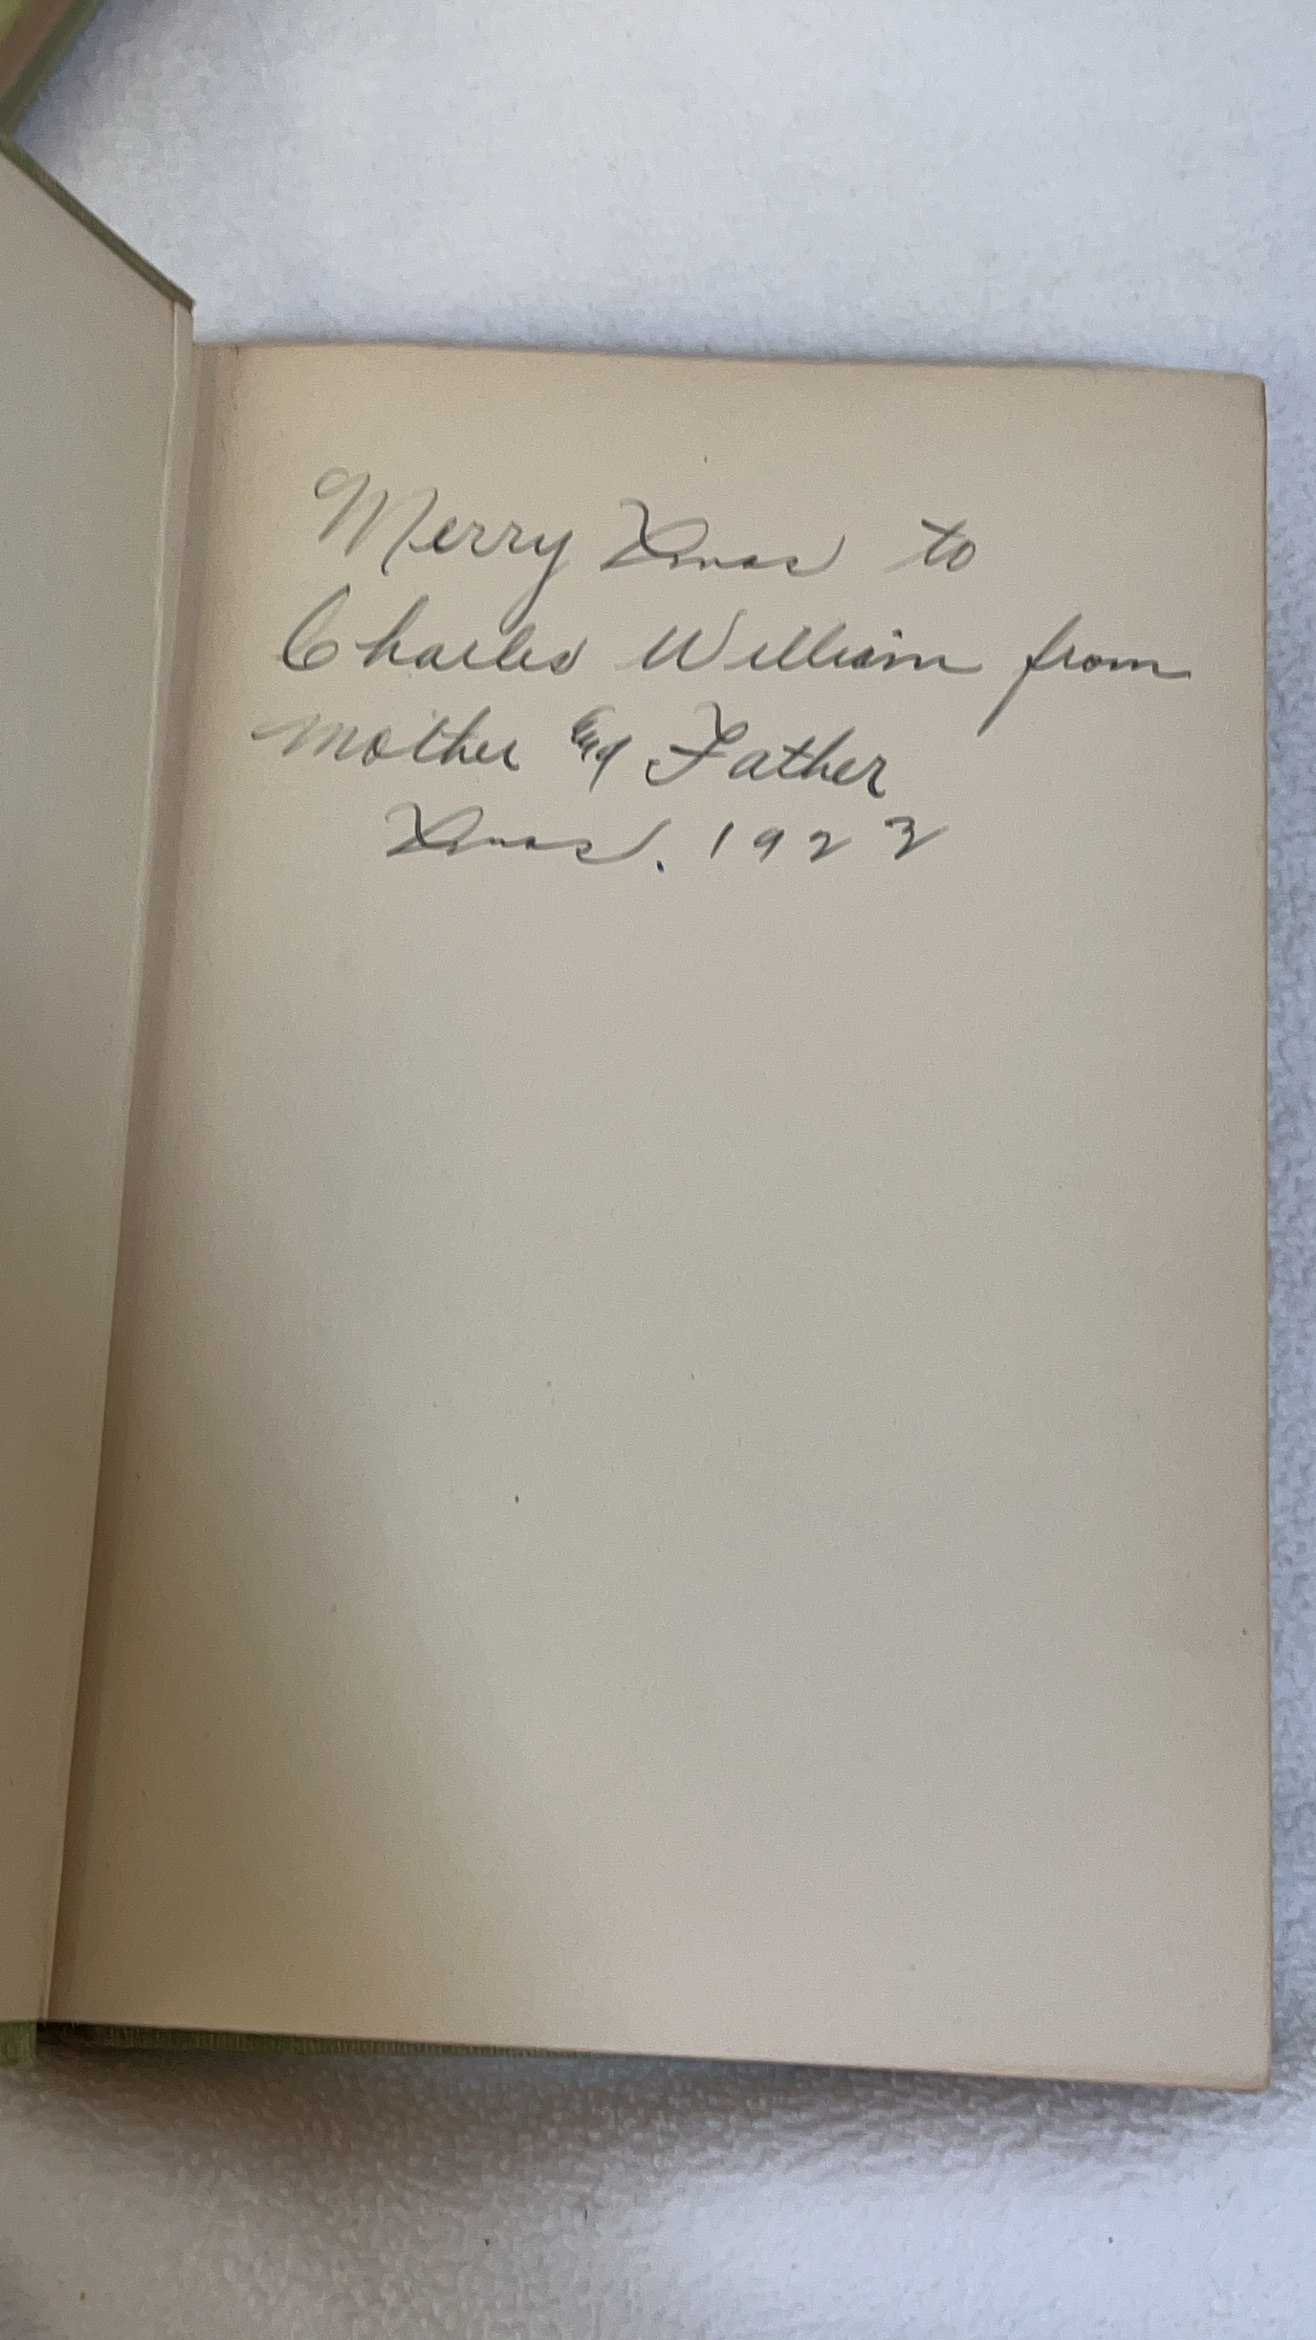 Merry Xmas to
Charles William from
Mother & Father
Xmas. 1922